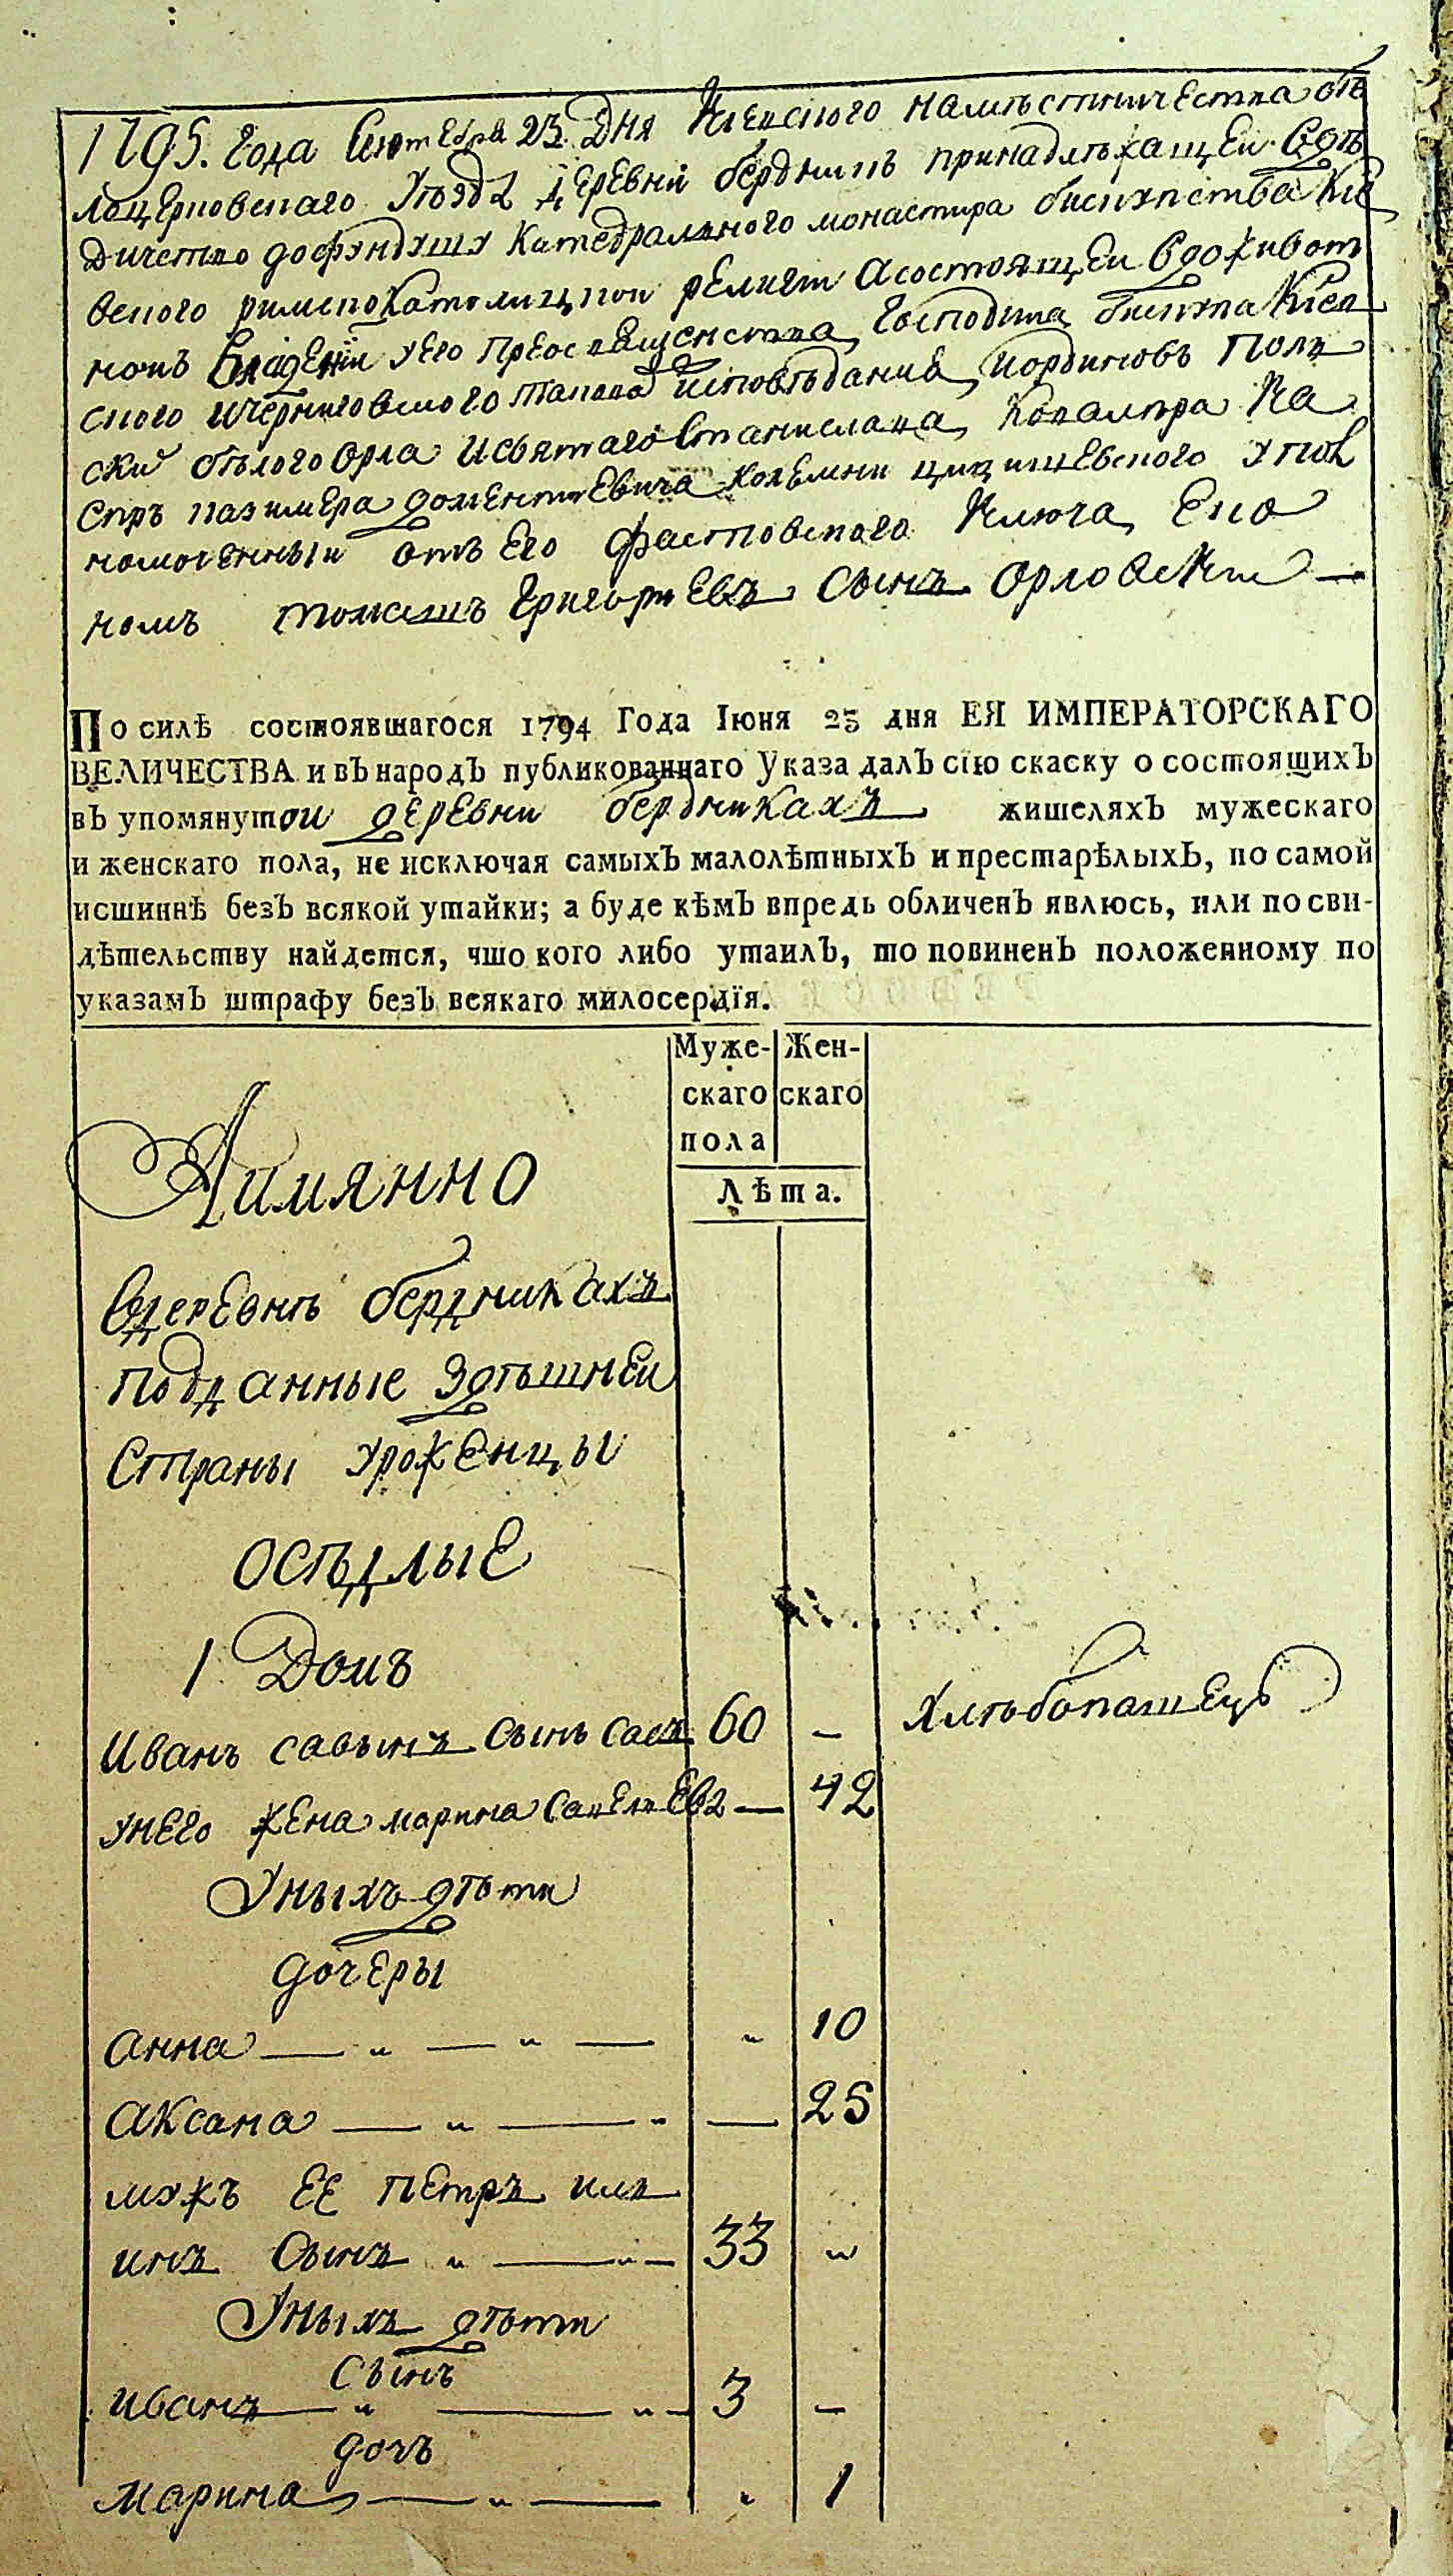 1795. Года Сентебра 23. Дня Киевского намѣстничества бѣ
лоцерковскаго Уѣзда деревни бердникъ принадлѣжащеи Вдѣ
дичетво дофундушу Катедралного монастира бискупства Кіе
вского римскокатолицкои религiи Асостоящеи Вдоживот
номъ Владенiи уего Преосвященства Господина бискупа Кiев
ского ичерниговского Такова исповѣданиа, иординовъ Поль
ски бѣлого Орла исвятаго Станислава Кавалира Ка
спръ казимера доментиевича Колюмни цицишевского упол
номоченныи отъ Его Фастовского Ключа Еко
номъ томашъ Григорьевъ Сынъ Орловски —
По силѣ состоявшагося 1794 Года Іюня 23 дня ЕЯ ИМПЕРАТОРСКАГО
ВЕЛИЧЕСТВА и въ народъ публикованнаго Указа далъ сїю скаску о состоящихъ
въ упомянутои деревни бердникахъ жителяхъ мужескаго
и женскаго пола, не исключая самыхъ малолѣтныхъ и престарѣлыхъ, по самой
истиннѣ безъ всякой утайки; а буде кѣмъ впредь обличенъ явлюсь, или по сви-
дѣтельству найдется, что кого либо утаилъ, то повиненъ положенному по
указамъ штрафу безъ всякаго милосердїя.
Муже- Жен-
скаго скаго
пола
Лѣта.
Аимянно
Вдеревнѣ бердникахъ
Подданные Здѣшнеи
Страны уроженцы
осѣдлые
1 Домъ
Иванъ савынъ Сынъ Савъ 60 — Хлѣбопашецъ
унего жена марина Савелиева — 42
Уныхъ дѣти
дочеры
Анна — „ — „ — „ 10
Аксана — „ — „ — 25
мужъ ее петръ иль
инъ Сынъ „ — „ — 33 „
Уныхъ дѣти
Сынъ
иванъ — „ — „ — 3 —
дочъ
марина — „ — „ 1